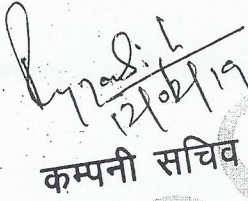 12/02/19
कम्पनी सचिव